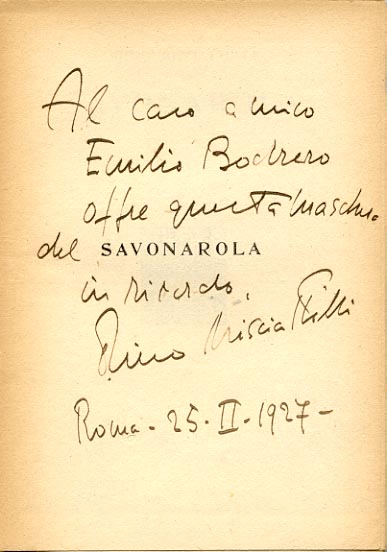 Al caro amico
Emilio Bodrero
offre questa maschera
del SAVONAROLA
in ricordo,
Rino
Roma - 25 - II - 1927 -